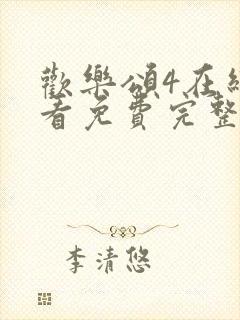 歡樂頌4在線
看免費完整
李清悠